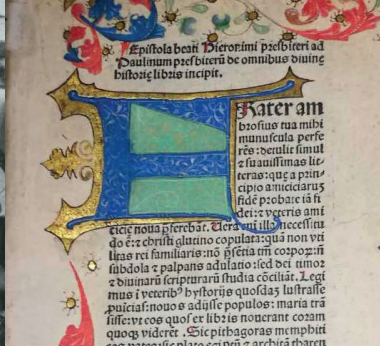 Epistola beati Hieronimi presbiteri ad
Paulinum presbiterū de omnibus diuinę
historię libris incipit.
FRater am
brosius tua mihi
munuscula perfe
rēs: detulit simul
⁊ suauissimas lit⸗
teras: quę a prin⸗
cipio amiciciarū
fidē probatę iā fi
dei: ⁊ veteris ami
cicię noua pferebat. Uera eni illa necessitu
do ē: ⁊ christi glutino copulata: quā non vti
litas rei familiaris: nō pñtia tm̄ corpoꝝ: nō
subdola ⁊ palpans adulatio: sed dei timor
⁊ diuinaꝝ scripturaꝝ studia cōciliāt. Legi
mus i veteribꝰ hystorijs quosdā lustrasse
puīcias: nouos adijsse populos: maria trā
sisse: vt eos quos ex libris nouerant coram
quoqꝫ viderēt. Sic pithagoras memphiti